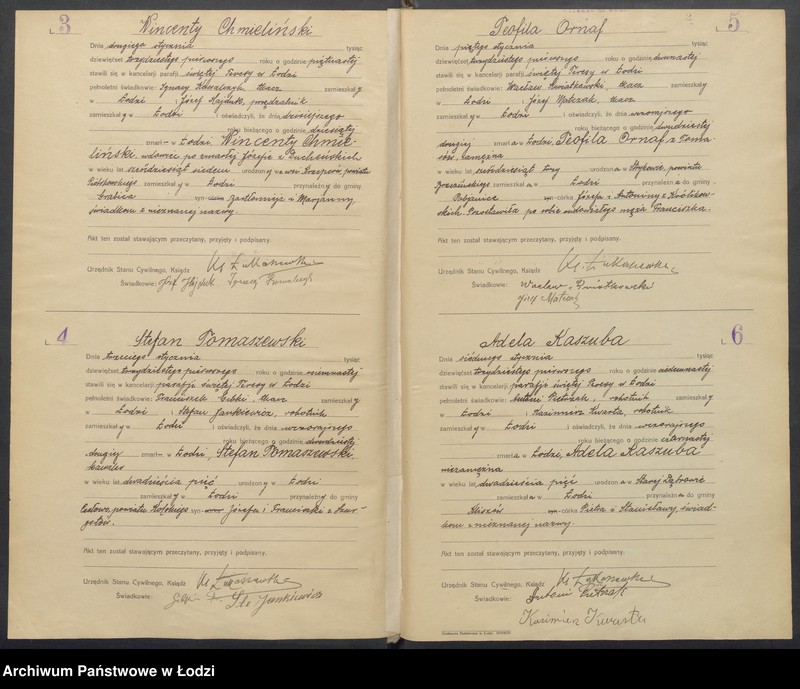 3
Wincenty Chmieliński
Dnia drugiego stycznia tysiąc
dziewięćset trzydziestego pierwszego roku o godzinie piętnastej
stawili się w kancelarji parafji świętej Teresy w Łodzi
pełnoletni świadkowie: Ignacy Kowalczyk, tkacz zamieszkały
w Łodzi i Józef Hajduk, przędzalnik
zamieszkały w Łodzi i oświadczyli, że dnia dzisiejszego
roku bieżącego o godzinie dziesiątej
zmarł w Łodzi, Wincenty Chmie-
liński wdowiec po zmarłej Józefie z
w wieku lat sześćdziesiąt siedem urodzony we wsi Krzepczów, powiatu
Piotrkowskiego zamieszkały w Łodzi przynależny do gminy
Grabica syn Bartłomieja i Marjanny,
świadkom z nieznanej nazwy.
Akt ten został stawającym przeczytany, przyjęty i podpisany.
Urzędnik Stanu Cywilnego, Ksiądz
Świadkowie: Józef Hajduk Ignacy Kowalczyk
4
Stefan Tomaszewski
Dnia trzeciego stycznia tysiąc
dziewięćset trzydziestego pierwszego roku o godzinie osiemnastej
stawili się w kancelarji parafji świętej Teresy w Łodzi
pełnoletni świadkowie: Franciszek tkacz zamieszkały
w Łodzi i Stefan Jankiewicz, robotnik
zamieszkały w Łodzi i oświadczyli, że dnia wczorajszego
roku bieżącego o godzinie dwudziestej
drugiej zmarł w Łodzi, Stefan Tomaszewski
kawaler
w wieku lat dwadzieścia pięć urodzony w Łodzi
zamieszkały w Łodzi przynależny do gminy
powiatu syn Józefa i Franciszki z
Akt ten został stawającym przeczytany, przyjęty i podpisany.
Urzędnik Stanu Cywilnego, Ksiądz
Świadkowie: Jankiewicz
5
Teofila Ornaf
Dnia piątego stycznia tysiąc
dziewięćset trzydziestego pierwszego roku o godzinie dwunastej
stawili się w kancelarji parafji świętej Teresy w Łodzi
pełnoletni świadkowie: Wacław Kwiatkowski, tkacz zamieszkały
w Łodzi i Józef tkacz
zamieszkały w Łodzi i oświadczyli, że dnia wczorajszego
roku bieżącego o godzinie dwudziestej
drugiej zmarła w Łodzi, Teofila Ornaf z
zamężna
w wieku lat sześćdziesiąt trzy urodzona w Strykowie, powiatu
Brzezińskiego zamieszkała w Łodzi przynależna do gminy
Pabjanice córka Józefa i Antoniny z Królikow-
skich. Pozostawiła po sobie owdowiałego męża Franciszka.
Akt ten został stawającym przeczytany, przyjęty i podpisany.
Urzędnik Stanu Cywilnego, Ksiądz
Świadkowie: Wacław Kwiatkowski
Józef
6
Adela Kaszuba
Dnia siódmego stycznia tysiąc
dziewięćset trzydziestego pierwszego roku o godzinie siedemnastej
stawili się w kancelarji parafji świętej Teresy w Łodzi
pełnoletni świadkowie: Antoni Pietrzak, robotnik zamieszkały
w Łodzi i Kazimierz Kwarta, robotnik
zamieszkały w Łodzi i oświadczyli, że dnia wczorajszego
roku bieżącego o godzinie czternastej
zmarła w Łodzi, Adela Kaszuba
niezamężna
w wieku lat dwadzieścia pięć urodzona w Starej Dąbrowie
zamieszkała w Łodzi przynależna do gminy
Kluszów córka Piotra i Stanisławy, świad-
kom z nieznanej nazwy.
Akt ten został stawającym przeczytany, przyjęty i podpisany.
Urzędnik Stanu Cywilnego, Ksiądz
Świadkowie: Antoni Pietrzak
Kazimierz Kwarta
Archiwum Państwowe w Łodzi